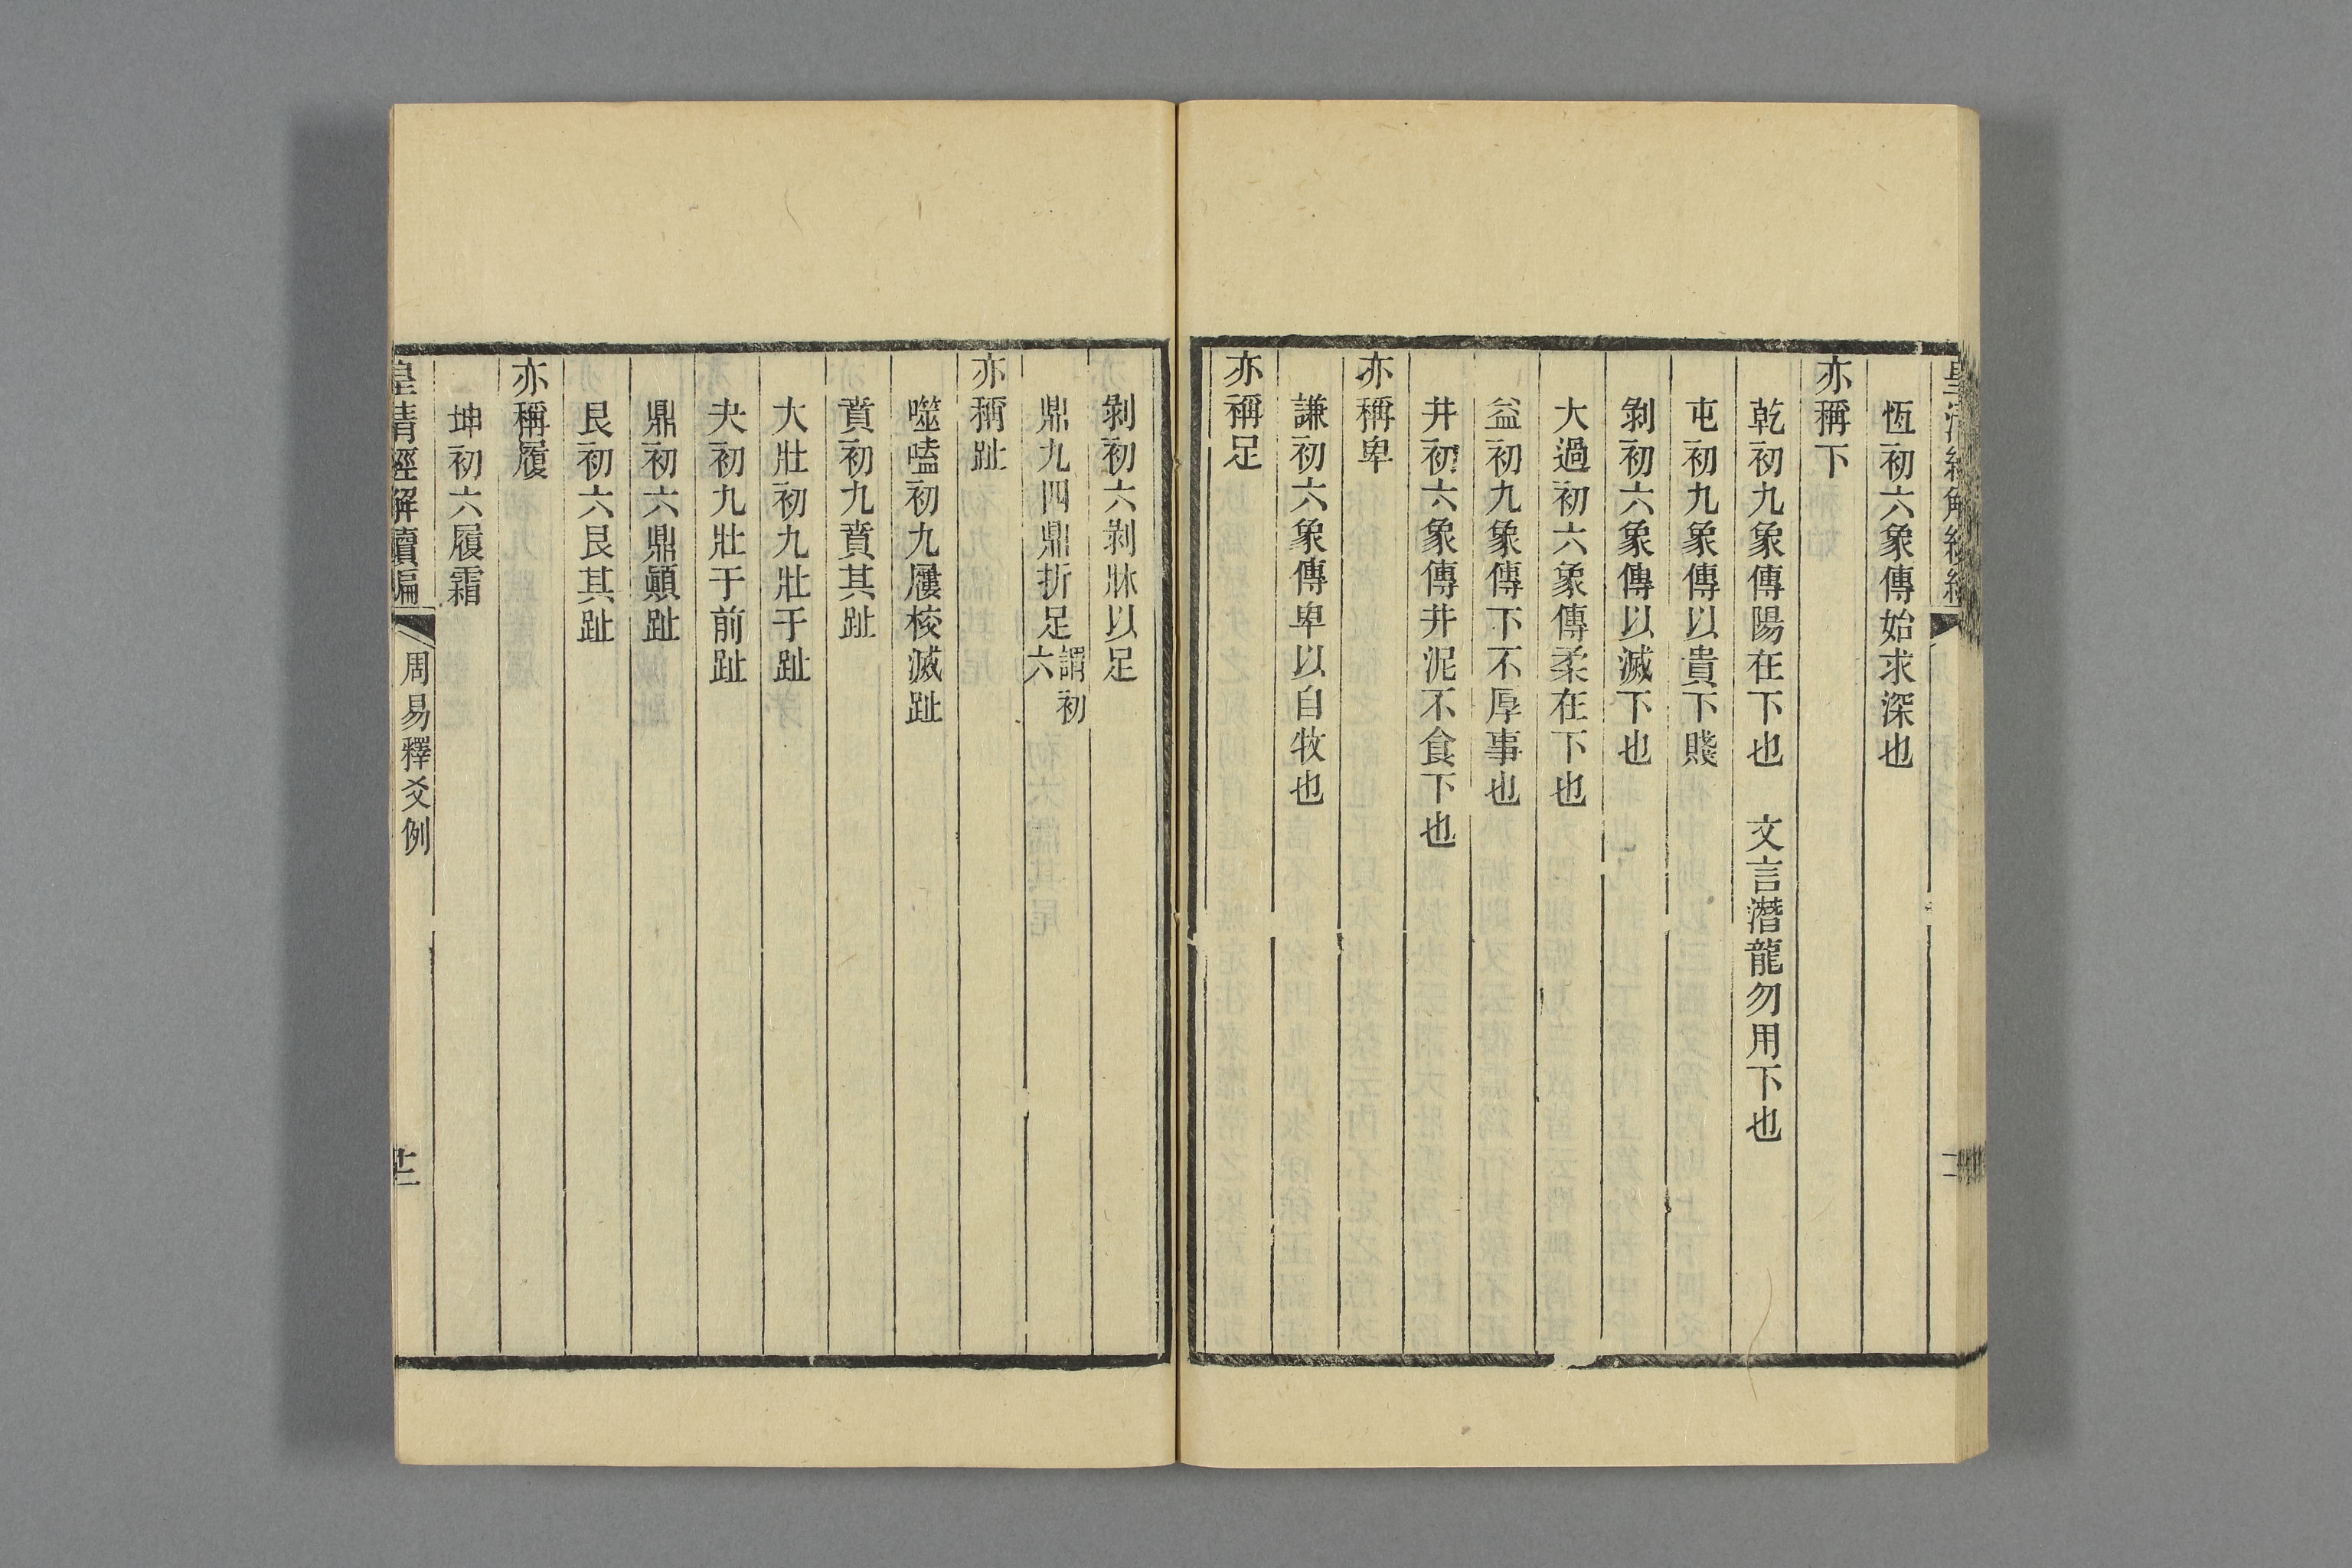 恆初六象傳始求深也
亦稱下
乾初九象傳陽在下也　文言潛龍勿用下也
屯初九象傳以貴下賤
剝初六象傳以滅下也
大過初六象傳柔在下也
益初九象傳下不厚事也
井初六象傳井泥不食下也
亦稱卑
謙初六象傳卑以自牧也
亦稱足
剝初六剝牀以足
鼎九四鼎折足謂初六
亦稱趾
噬嗑初九屨校滅趾
賁初九賁其趾
大壯初九壯于趾
夬初九壯于前趾
鼎初六鼎顚趾
艮初六艮其趾
亦稱履
坤初六履霜
皇清經解續編
周易釋爻例